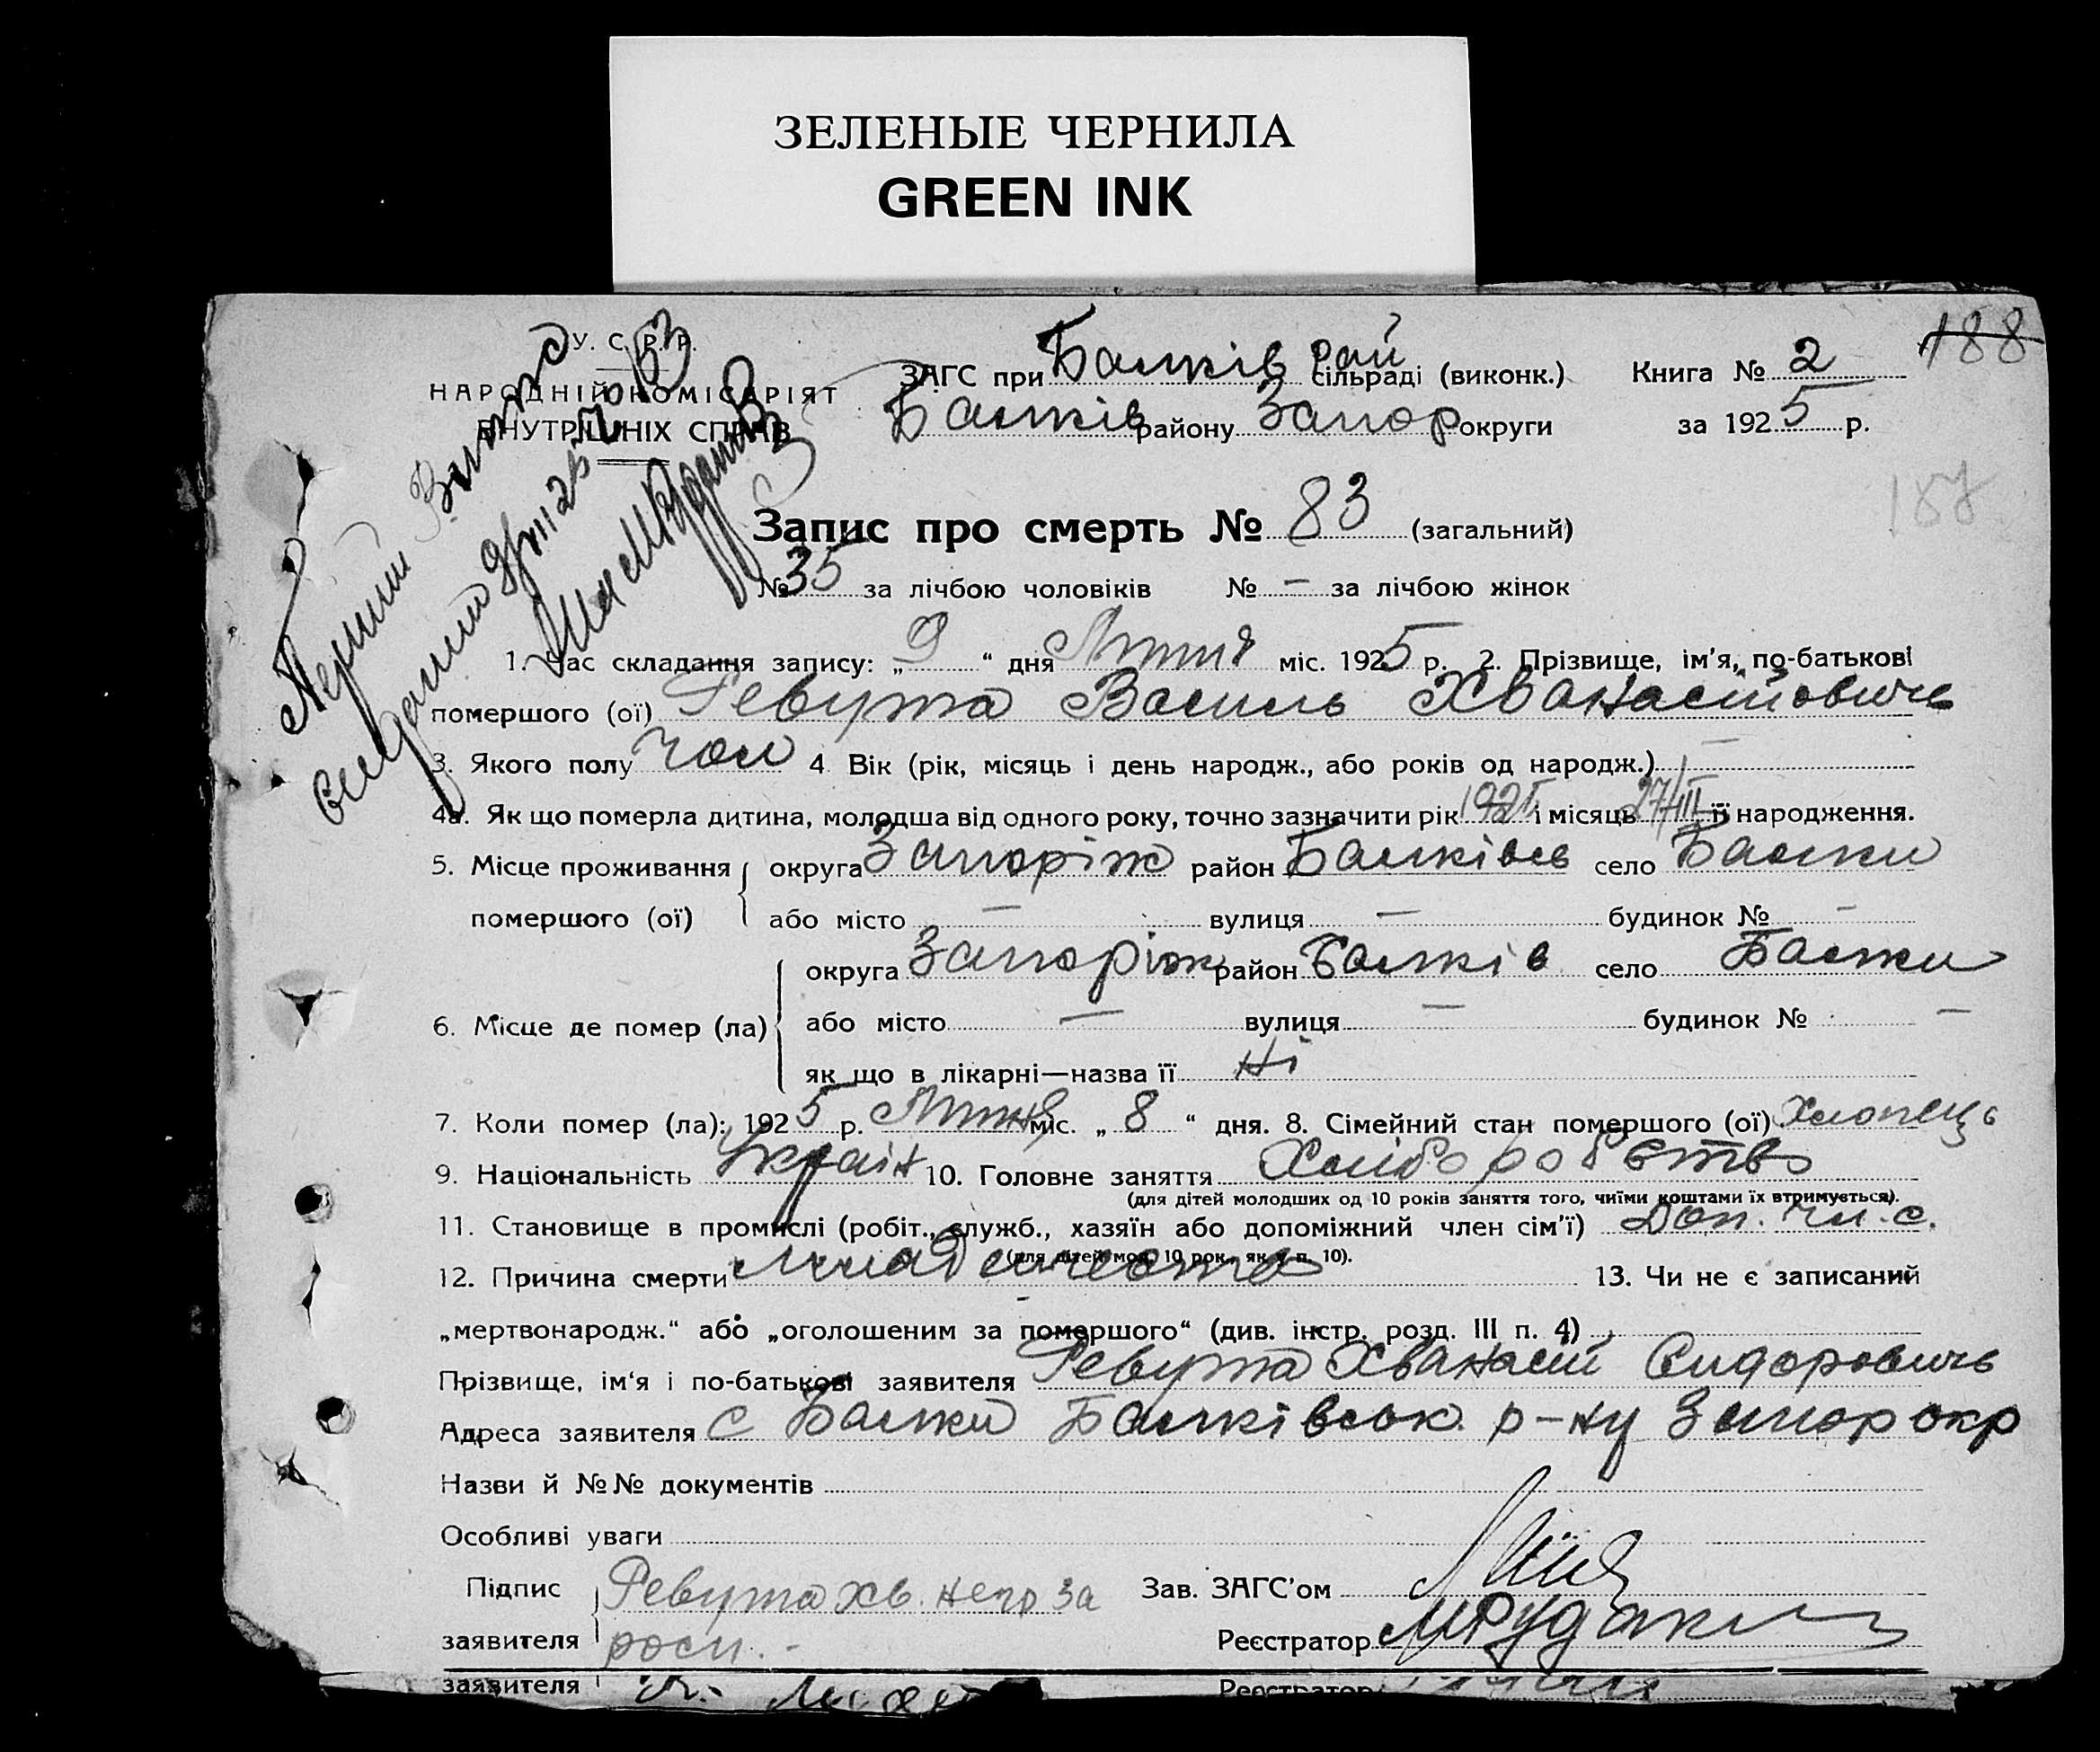 ЗЕЛЕНЫЕ ЧЕРНИЛА
GREEN INK
У. С. Р. Р.
НАРОДНІЙ КОМІСАРІЯТ
ВНУТРІШНІХ СПРАВ
188
ЗАГС при Балків рай сільраді (виконк.) Книга № 2
Балків району Запор округи за 1925 р.
187
Запис про смерть № 83 (загальний)
№ 35 за лічбою чоловіків № — за лічбою жінок
Перший
виданий
1. Час складання запису: „9“ дня Лютня міс. 1925 р. 2. Прізвище, ім'я, по-батькові
помершого (ої) Ревута Василь Хванасійовичь
3. Якого полу Чол 4. Вік (рік, місяць і день народж., або років од народж.) —
4а. Як що померла дитина, молодша від одного року, точно зазначити рік і місяць 27/III її народження.
5. Місце проживання округа Запоріж район Балківсь село Балки
помершого (ої) або місто — вулиця — будинок № —
округа Запоріж район Балків село Балки
6. Місце де помер (ла) або місто — вулиця — будинок № —
як що в лікарні—назва її Ні
7. Коли помер (ла): 1925 р. Лютня міс. „8“ дня. 8. Сімейний стан помершого (ої) Хлопець
9. Національність Україн 10. Головне заняття Хліборобство
(для дітей молодших од 10 років заняття того, чиїми коштами їх втримується).
11. Становище в промислі (робіт., служб., хазяїн або допоміжний член сім'ї) Доп. чл. с.
(для дітей мол. 10 рок. як у п. 10).
12. Причина смерти 13. Чи не є записаний
„мертвонародж.“ або „оголошеним за помершого“ (див. інстр. розд. III п. 4)
Прізвище, ім'я і по-батькові заявителя Ревута Хванасій Сидоровичь
Адреса заявителя с Балки Балківськ. р-ну Запор окр
Назви й №№ документів
Особливі уваги
Підпис Ревута Хв. непр за Зав. ЗАГС'ом
заявителя росп. Реєстратор МРудак
заявителя Реєстратор